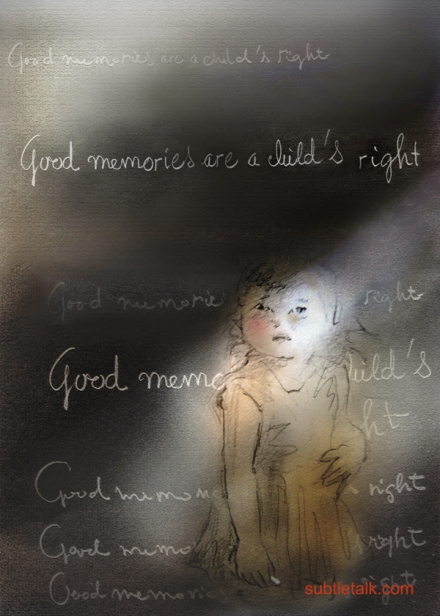 Good memories are a child's right
Good memories are a child's right
Good memorie right
Good memo hild's
ht
Good memo right
Good memo right
Good memorie right
subtletalk.com